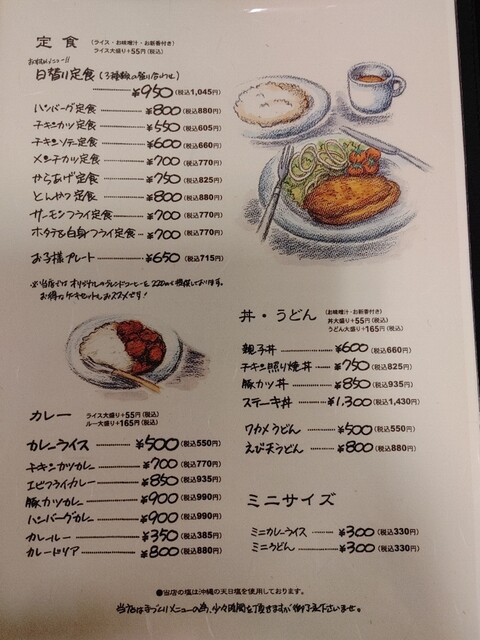 定 食 (ライス・お味噌汁・お新香付き)
ライス大盛り+55円(税込)
おすすめメニュー!!
日替り定食(3種類の盛り合わせ)
¥950(税込1,045円)
ハンバーグ定食 ¥800(税込880円)
チキンカツ定食 ¥550(税込605円)
チキンソテー定食 ¥600(税込660円)
メンチカツ定食 ¥700(税込770円)
からあげ定食 ¥750(税込825円)
とんかつ定食 ¥800(税込880円)
サーモンフライ定食 ¥700(税込770円)
ホタテ&白身フライ定食 ¥700(税込770円)
お子様プレート ¥650(税込715円)
※当店では オリジナルのブレンドコーヒーを 220円で提供しております。
お得なケーキセットもおススメです!
カレー ライス大盛り+55円(税込)
ルー大盛り+165円(税込)
カレーライス ¥500(税込550円)
チキンカツカレー ¥700(税込770円)
エビフライカレー ¥850(税込935円)
豚カツカレー ¥900(税込990円)
ハンバーグカレー ¥900(税込990円)
カレールー ¥350(税込385円)
カレードリア ¥800(税込880円)
丼・うどん (お味噌汁・お新香付き)
丼大盛り+55円(税込)
うどん大盛り+165円(税込)
親子丼 ¥600(税込660円)
チキン照り焼丼 ¥750(税込825円)
豚カツ丼 ¥850(税込935円)
ステーキ丼 ¥1,300(税込1,430円)
ワカメうどん ¥500(税込550円)
えび天うどん ¥800(税込880円)
ミニサイズ
ミニカレーライス ¥300(税込330円)
ミニうどん ¥300(税込330円)
●当店の塩は沖縄の天日塩を使用しております。
当店は手づくりメニューの為、少々時間を頂きますが御了承下さいませ。